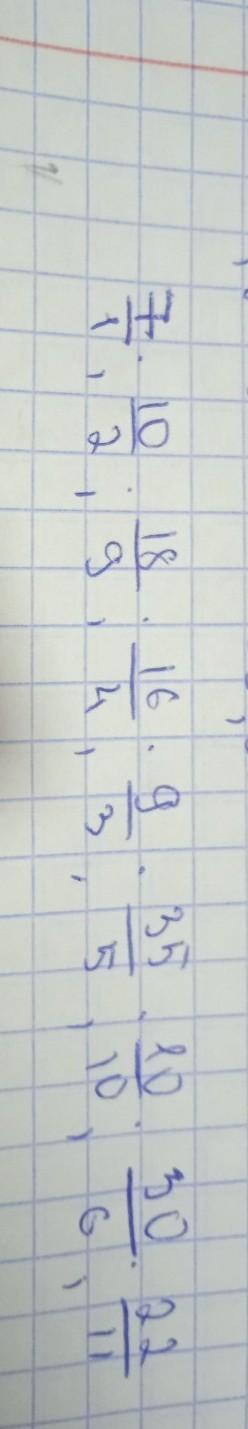 7/1 ; 10/2 ; 18/9 ; 16/4 ; 9/3 ; 35/5 ; 20/10 ; 30/6 ; 22/11